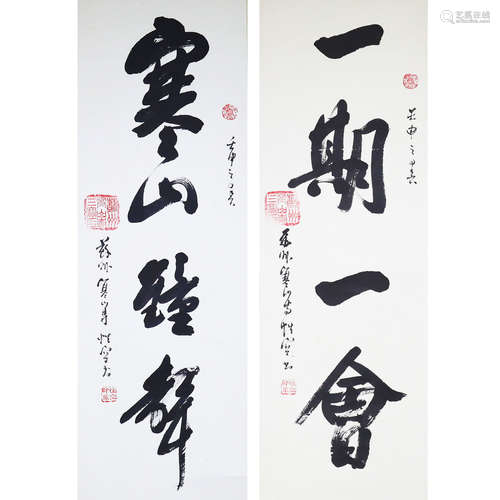 一期一會
壬申之春
蘇州寒山寺性空书
寒山鐘聲
壬申之春
蘇州寒山寺性空书
艺狐在线